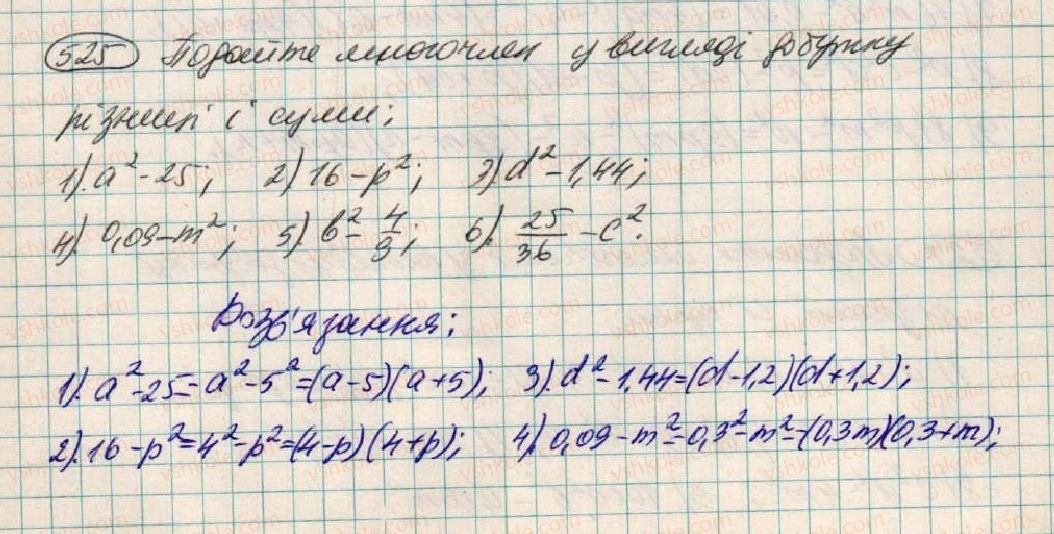 525 Подайте многочлен у вигляді добутку
різниці і суми:
1). a²-25; 2) 16-p²; 3) d²-1,44;
4). 0,09-m²; 5) b²-4/9; 6). 25/36-c².
Розв'язання:
1). a²-25=a²-5²=(a-5)(a+5); 3). d²-1,44=(d-1,2)(d+1,2);
2). 16-p²=4²-p²=(4-p)(4+p); 4) 0,09-m²=0,3²-m²=(0,3m)(0,3+m);